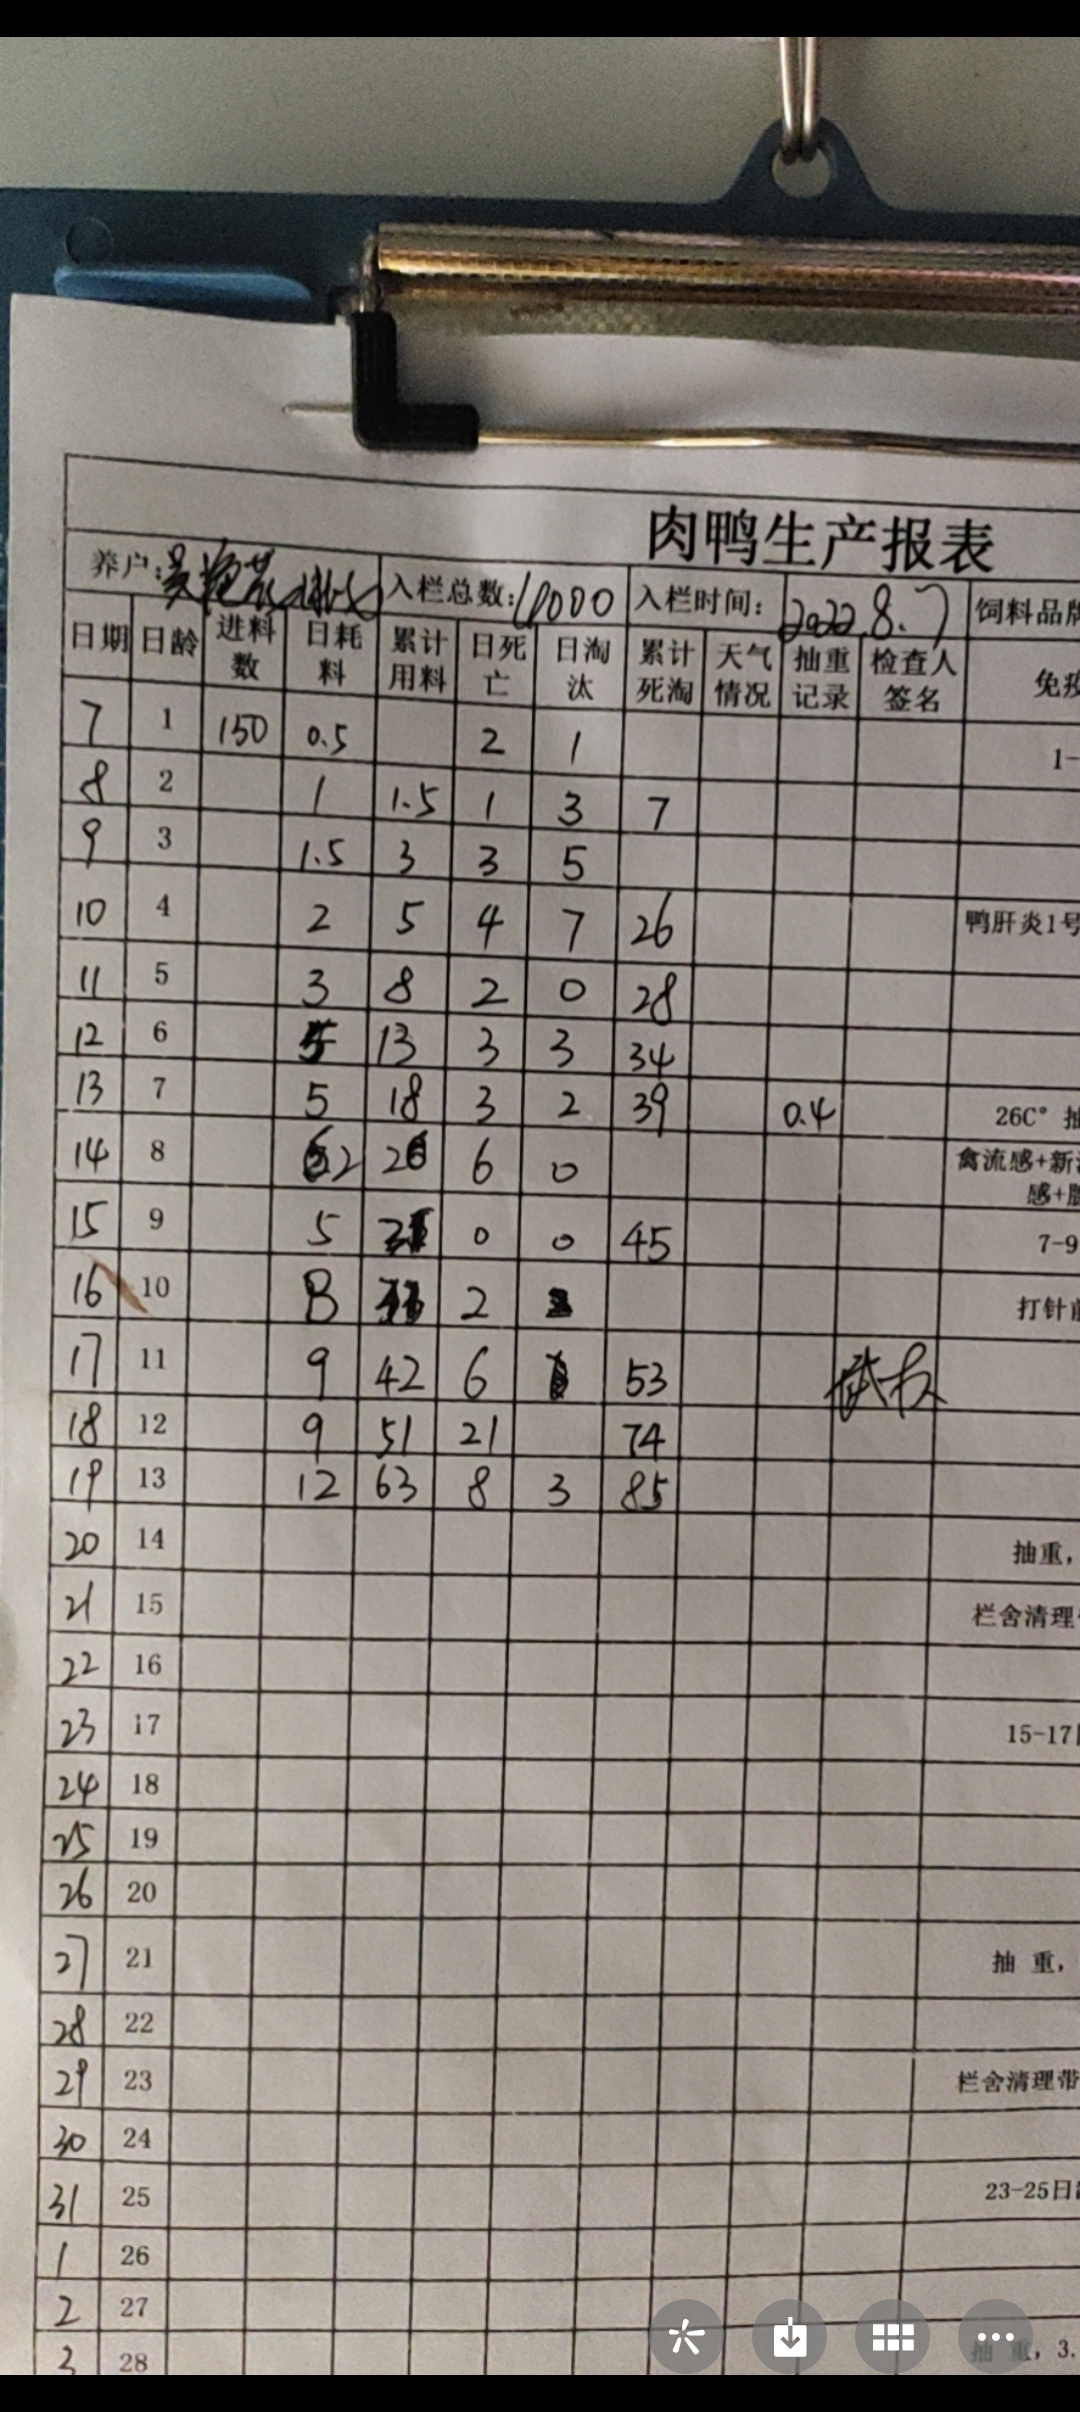 肉鸭生产报表
养户: 入栏总数: 入栏时间: 2022.8.7 饲料品牌
日期 日龄 进料数 日耗料 累计用料 日死亡 日淘汰 累计死淘 天气情况 抽重记录 检查人签名 免疫
7 1 150 0.5 2 1 1-
8 2 1 1.5 1 3 7
9 3 1.5 3 3 5
10 4 2 5 4 7 26 鸭肝炎1号
11 5 3 8 2 0 28
12 6 5 13 3 3 34
13 7 5 18 3 2 39 0.4 26C° 抽
14 8 6 0 禽流感+新
感+
15 9 5 0 0 45 7-9
16 10 8 2 打针前
17 11 9 42 6 53
18 12 9 51 21 74
19 13 12 63 8 3 85
20 14 抽重，
21 15 栏舍清理
22 16
23 17 15-17
24 18
25 19
26 20
27 21 抽 重，
28 22
29 23 栏舍清理带
30 24
31 25 23-25日
1 26
2 27
3 28 抽 重，3.